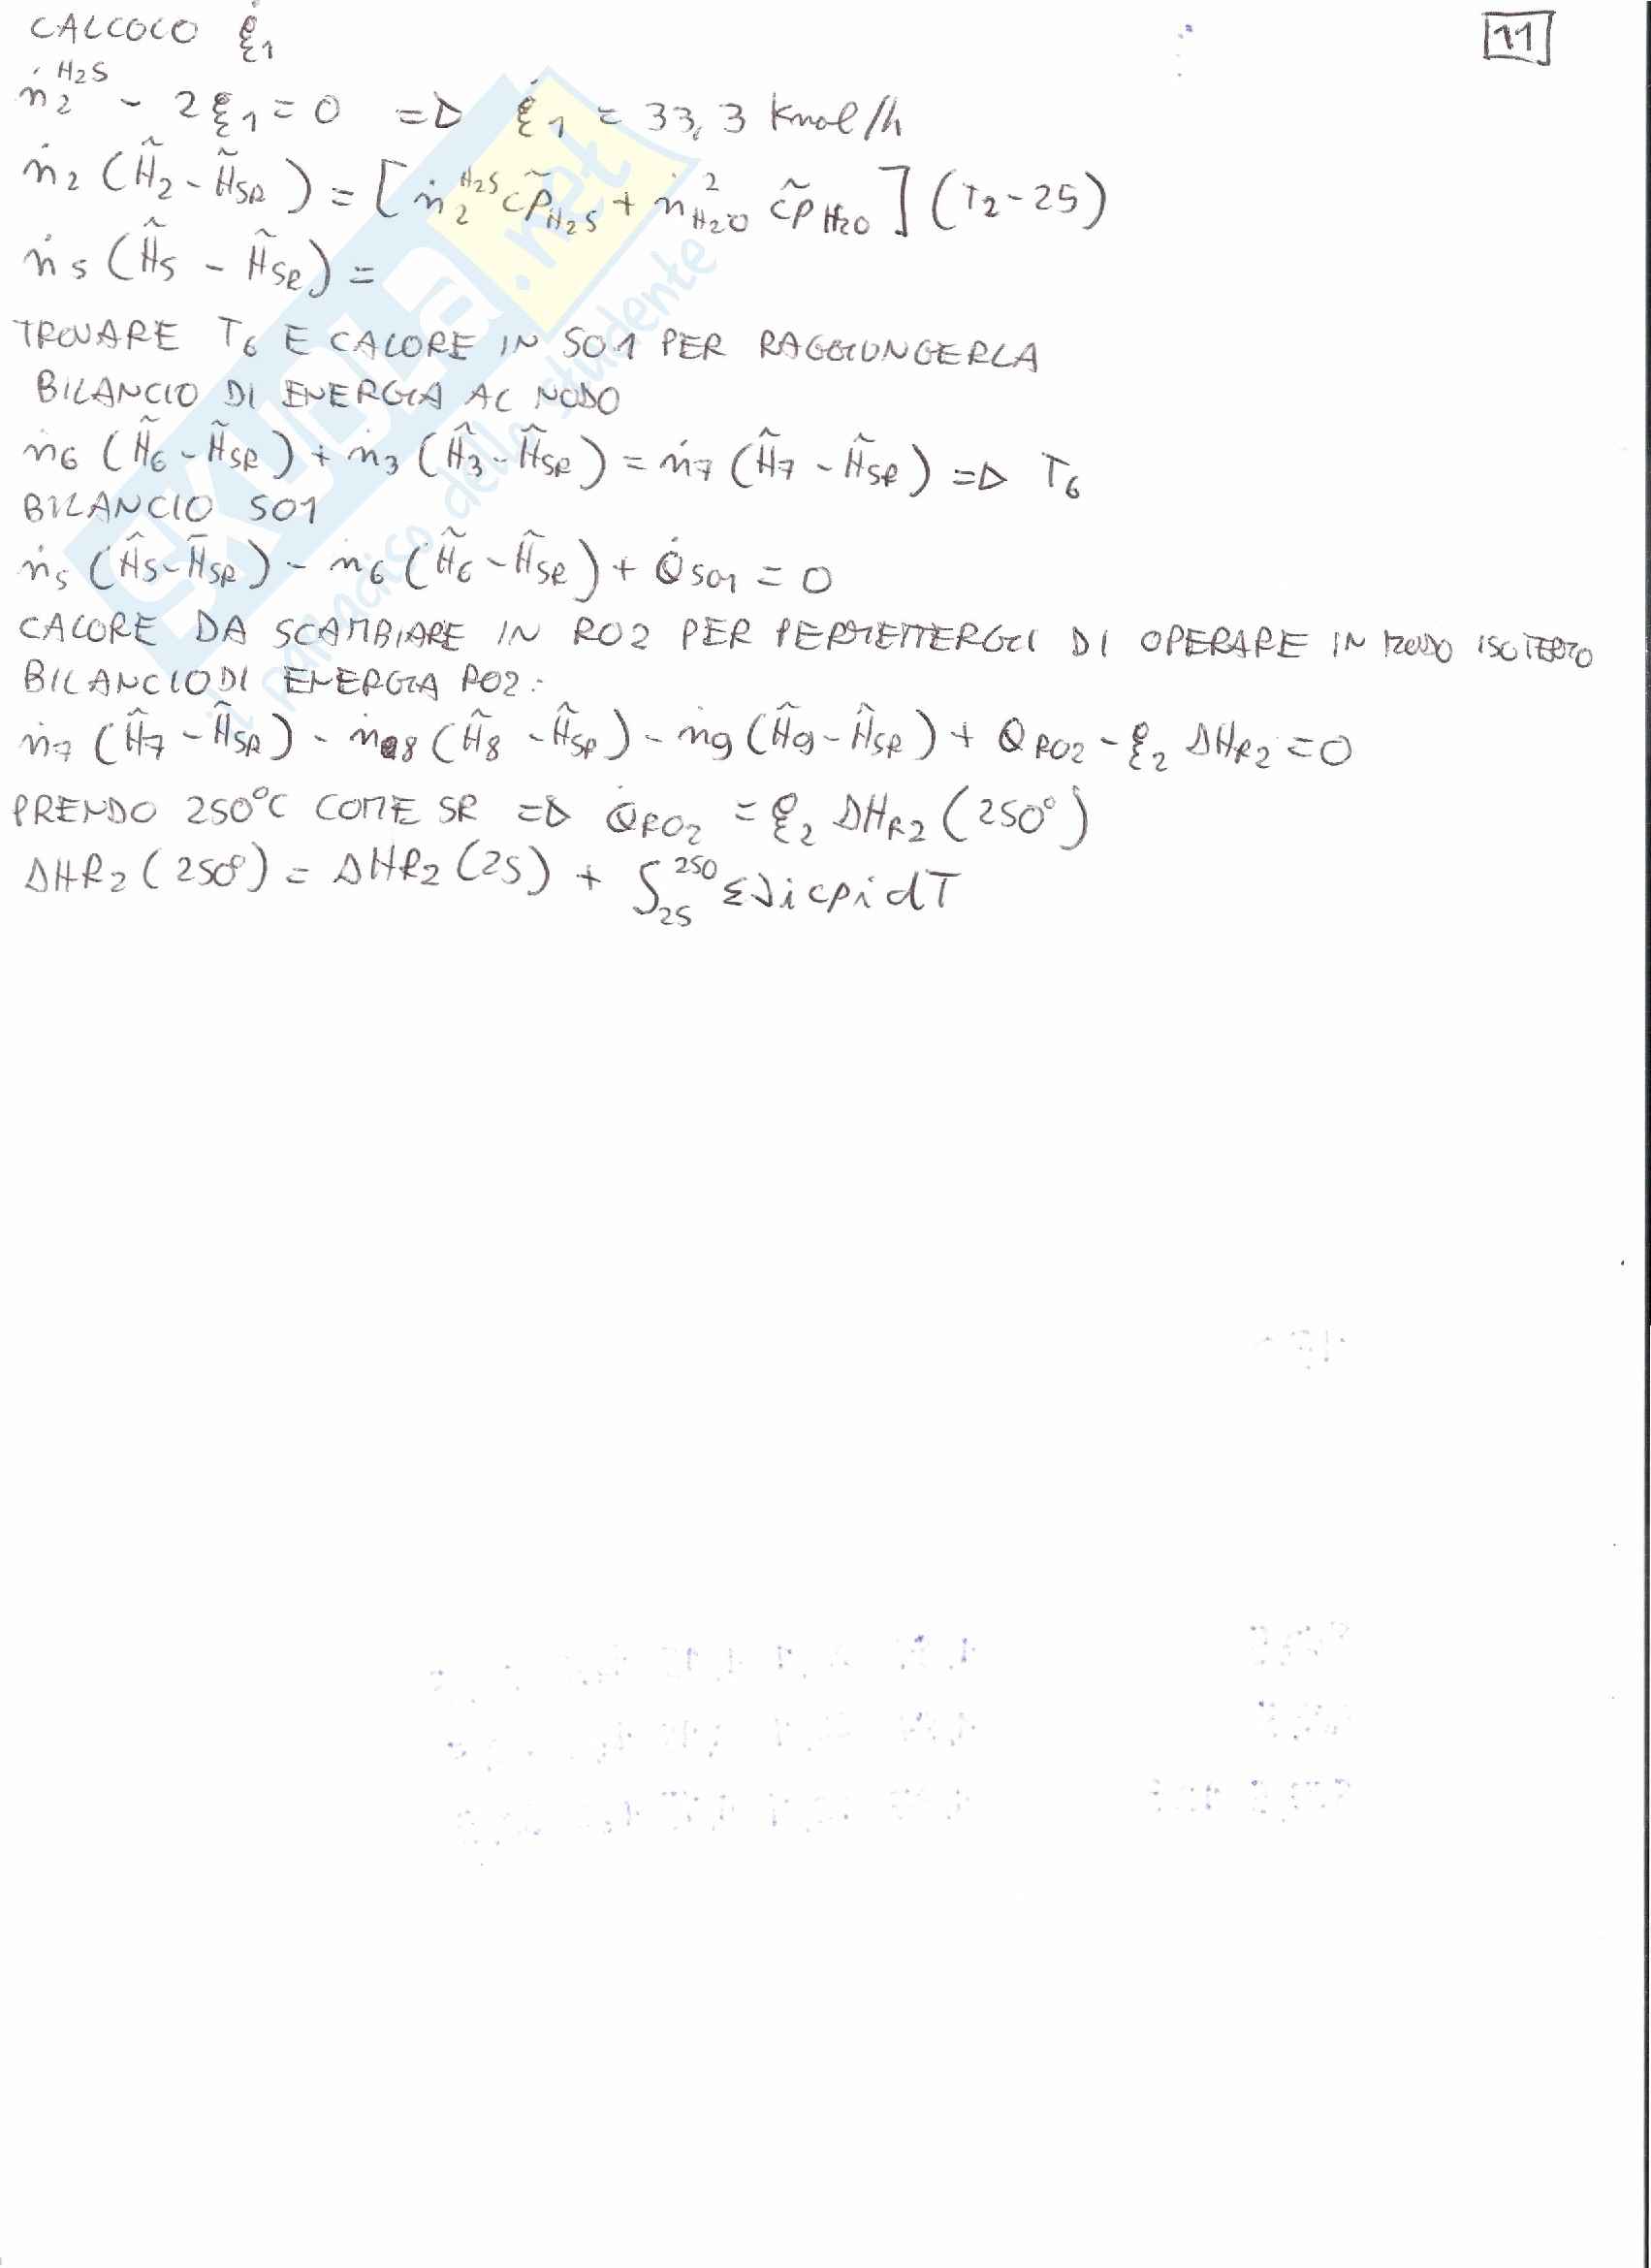 CALCOLO ξ̇1
11
ṅ2^H2S - 2ξ1 = 0 => ξ̇1 = 33,3 Kmol/h
ṅ2 (H̃2 - H̃SR) = [ṅ2^H2S c̃pH2S + ṅH2O^2 c̃pH2O] (T2-25)
ṅ5 (H̃5 - H̃SR) =
TROVARE T6 E CALORE IN SO1 PER RAGGIUNGERLA
BILANCIO DI ENERGIA AL NODO
ṅ6 (H̃6 - H̃SR) + ṅ3 (H̃3 - H̃SR) = ṅ7 (H̃7 - H̃SR) => T6
BILANCIO SO1
ṅ5 (H̃5 - H̃SR) - ṅ6 (H̃6 - H̃SR) + Q̇SO1 = 0
CALORE DA SCAMBIARE IN RO2 PER PERMETTERGLI DI OPERARE IN MODO ISOTERMO
BILANCIO DI ENERGIA RO2:
ṅ7 (H̃7 - H̃SR) - ṅ8 (H̃8 - H̃SR) - ṅ9 (H̃9 - H̃SR) + QRO2 - ξ2 ΔHR2 = 0
PRENDO 250°C COME SR => Q̇RO2 = ξ2 ΔHR2 (250°)
ΔHR2 (250°) = ΔHR2 (25) + ∫25^250 Σνi cpi dT
SKUOLA.net
il paradiso dello studente